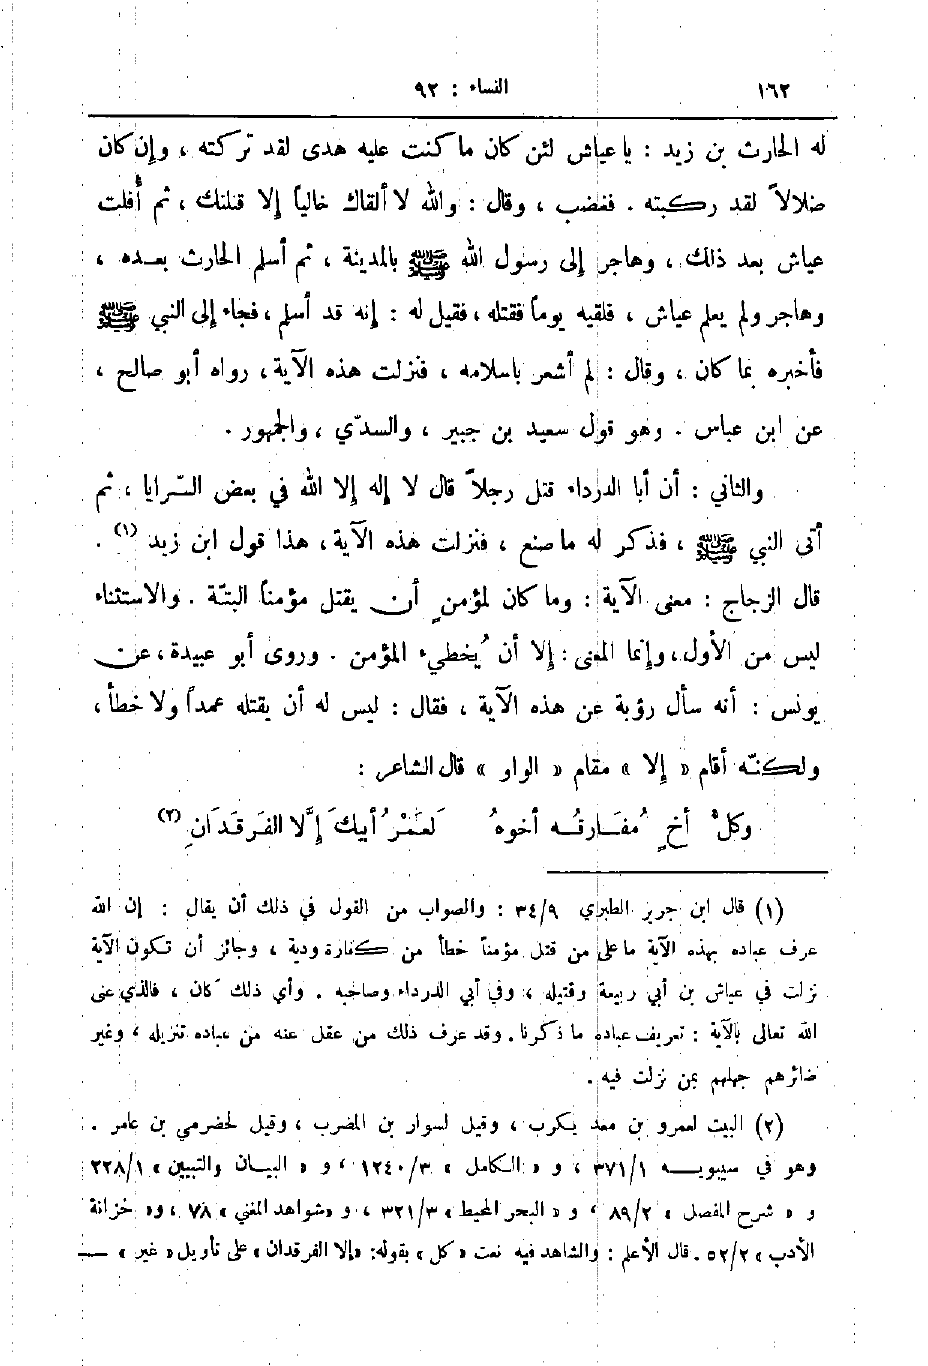 ١٦٢ النساء : ٩٢
له الحارث بن زيد : يا عياش لئن كان ما كنت عليه هدى لقد تركته ، وإن كان
ضلالاً لقد ركبته . فغضب ، وقال : والله لا ألقاك خالياً إلا قتلتك ، ثم أُفلت
عياش بعد ذلك ، وهاجر إلى رسول الله ﷺ بالمدينة ، ثم أسلم الحارث بعده ،
وهاجر ولم يعلم عياش ، فلقيه يوماً فقتله ، فقيل له : إنه قد أسلم ، فجاء إلى النبي ﷺ
فأخبره بما كان ، وقال : لم أشعر باسلامه ، فنزلت هذه الآية ، رواه أبو صالح ،
عن ابن عباس . وهو قول سعيد بن جبير ، والسدّي ، والجمهور .
والثاني : أن أبا الدرداء قتل رجلاً قال لا إله إلا الله في بعض السّرايا ، ثم
أتى النبي ﷺ ، فذكر له ما صنع ، فنزلت هذه الآية ، هذا قول ابن زيد (١) .
قال الزجاج : معنى الآية : وما كان لمؤمنٍ أن يقتل مؤمناً البتّة . والاستثناء
ليس من الأول ، وإنما المعنى : إلا أن يُخطيء المؤمن . وروى أبو عبيدة ، عن
يونس : أنه سأل رؤبة عن هذه الآية ، فقال : ليس له أن يقتله عمداً ولا خطأ ،
ولكنّه أقام « إلا » مقام « الواو » قال الشاعر :
وكلُّ أخٍ مُفَارِقُه أخوهُ لَعَمْرُ أبيكَ إلَّا الفَرقَدَانِ (٢)
(١) قال ابن جرير الطبري ٣٤/٩ : والصواب من القول في ذلك أن يقال : إن الله
عرف عباده بهذه الآية ما على من قتل مؤمناً خطأ من كفارة ودية ، وجائز أن تكون الآية
نزلت في عياش بن أبي ربيعة وقتيله ، وفي أبي الدرداء وصاحبه . وأي ذلك كان ، فالذي عنى
الله تعالى بالآية : تعريف عباده ما ذكرنا . وقد عرف ذلك من عقل عنه من عباده تنزيله ، وغير
ضائرهم جهلهم بمن نزلت فيه .
(٢) البيت لعمرو بن معد يكرب ، وقيل لسوار بن المضرب ، وقيل لحضرمي بن عامر .
وهو في سيبويه ٣٧١/١ ، و « الكامل » ١٢٤٠/٣ ، و « البيان والتبيين » ٢٢٨/١
و « شرح المفصل » ٨٩/٢ ، و « البحر المحيط » ٣٢١/٣ ، و «شواهد المغني » ٧٨ ، و« خزانة
الأدب » ٥٢/٢ . قال الأعلم : والشاهد فيه نعت « كل » بقوله: «إلا الفرقدان» على تأويل « غير » —